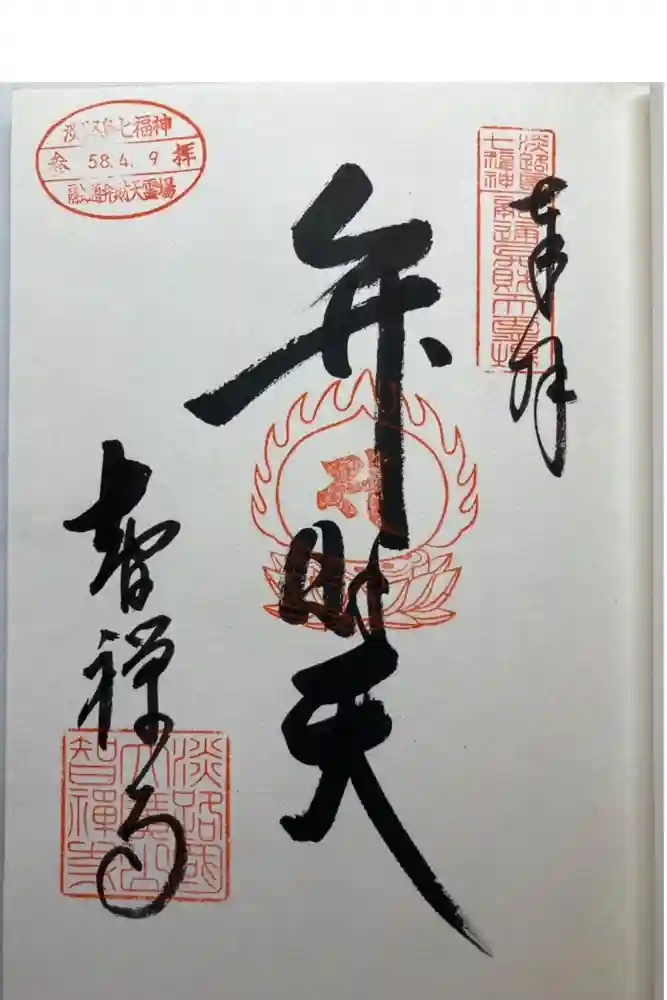 淡路島七福神
参 58.4.9 拝
融通弁財天霊場
奉拝
淡路島
七福神
融通弁財天霊場
弁財天
智禅寺
淡路國
大廣山
智禪寺